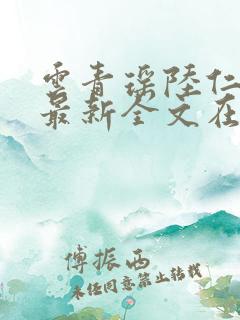 云青瑶陆仁
最新全文在
傅振西
未经同意禁止转载